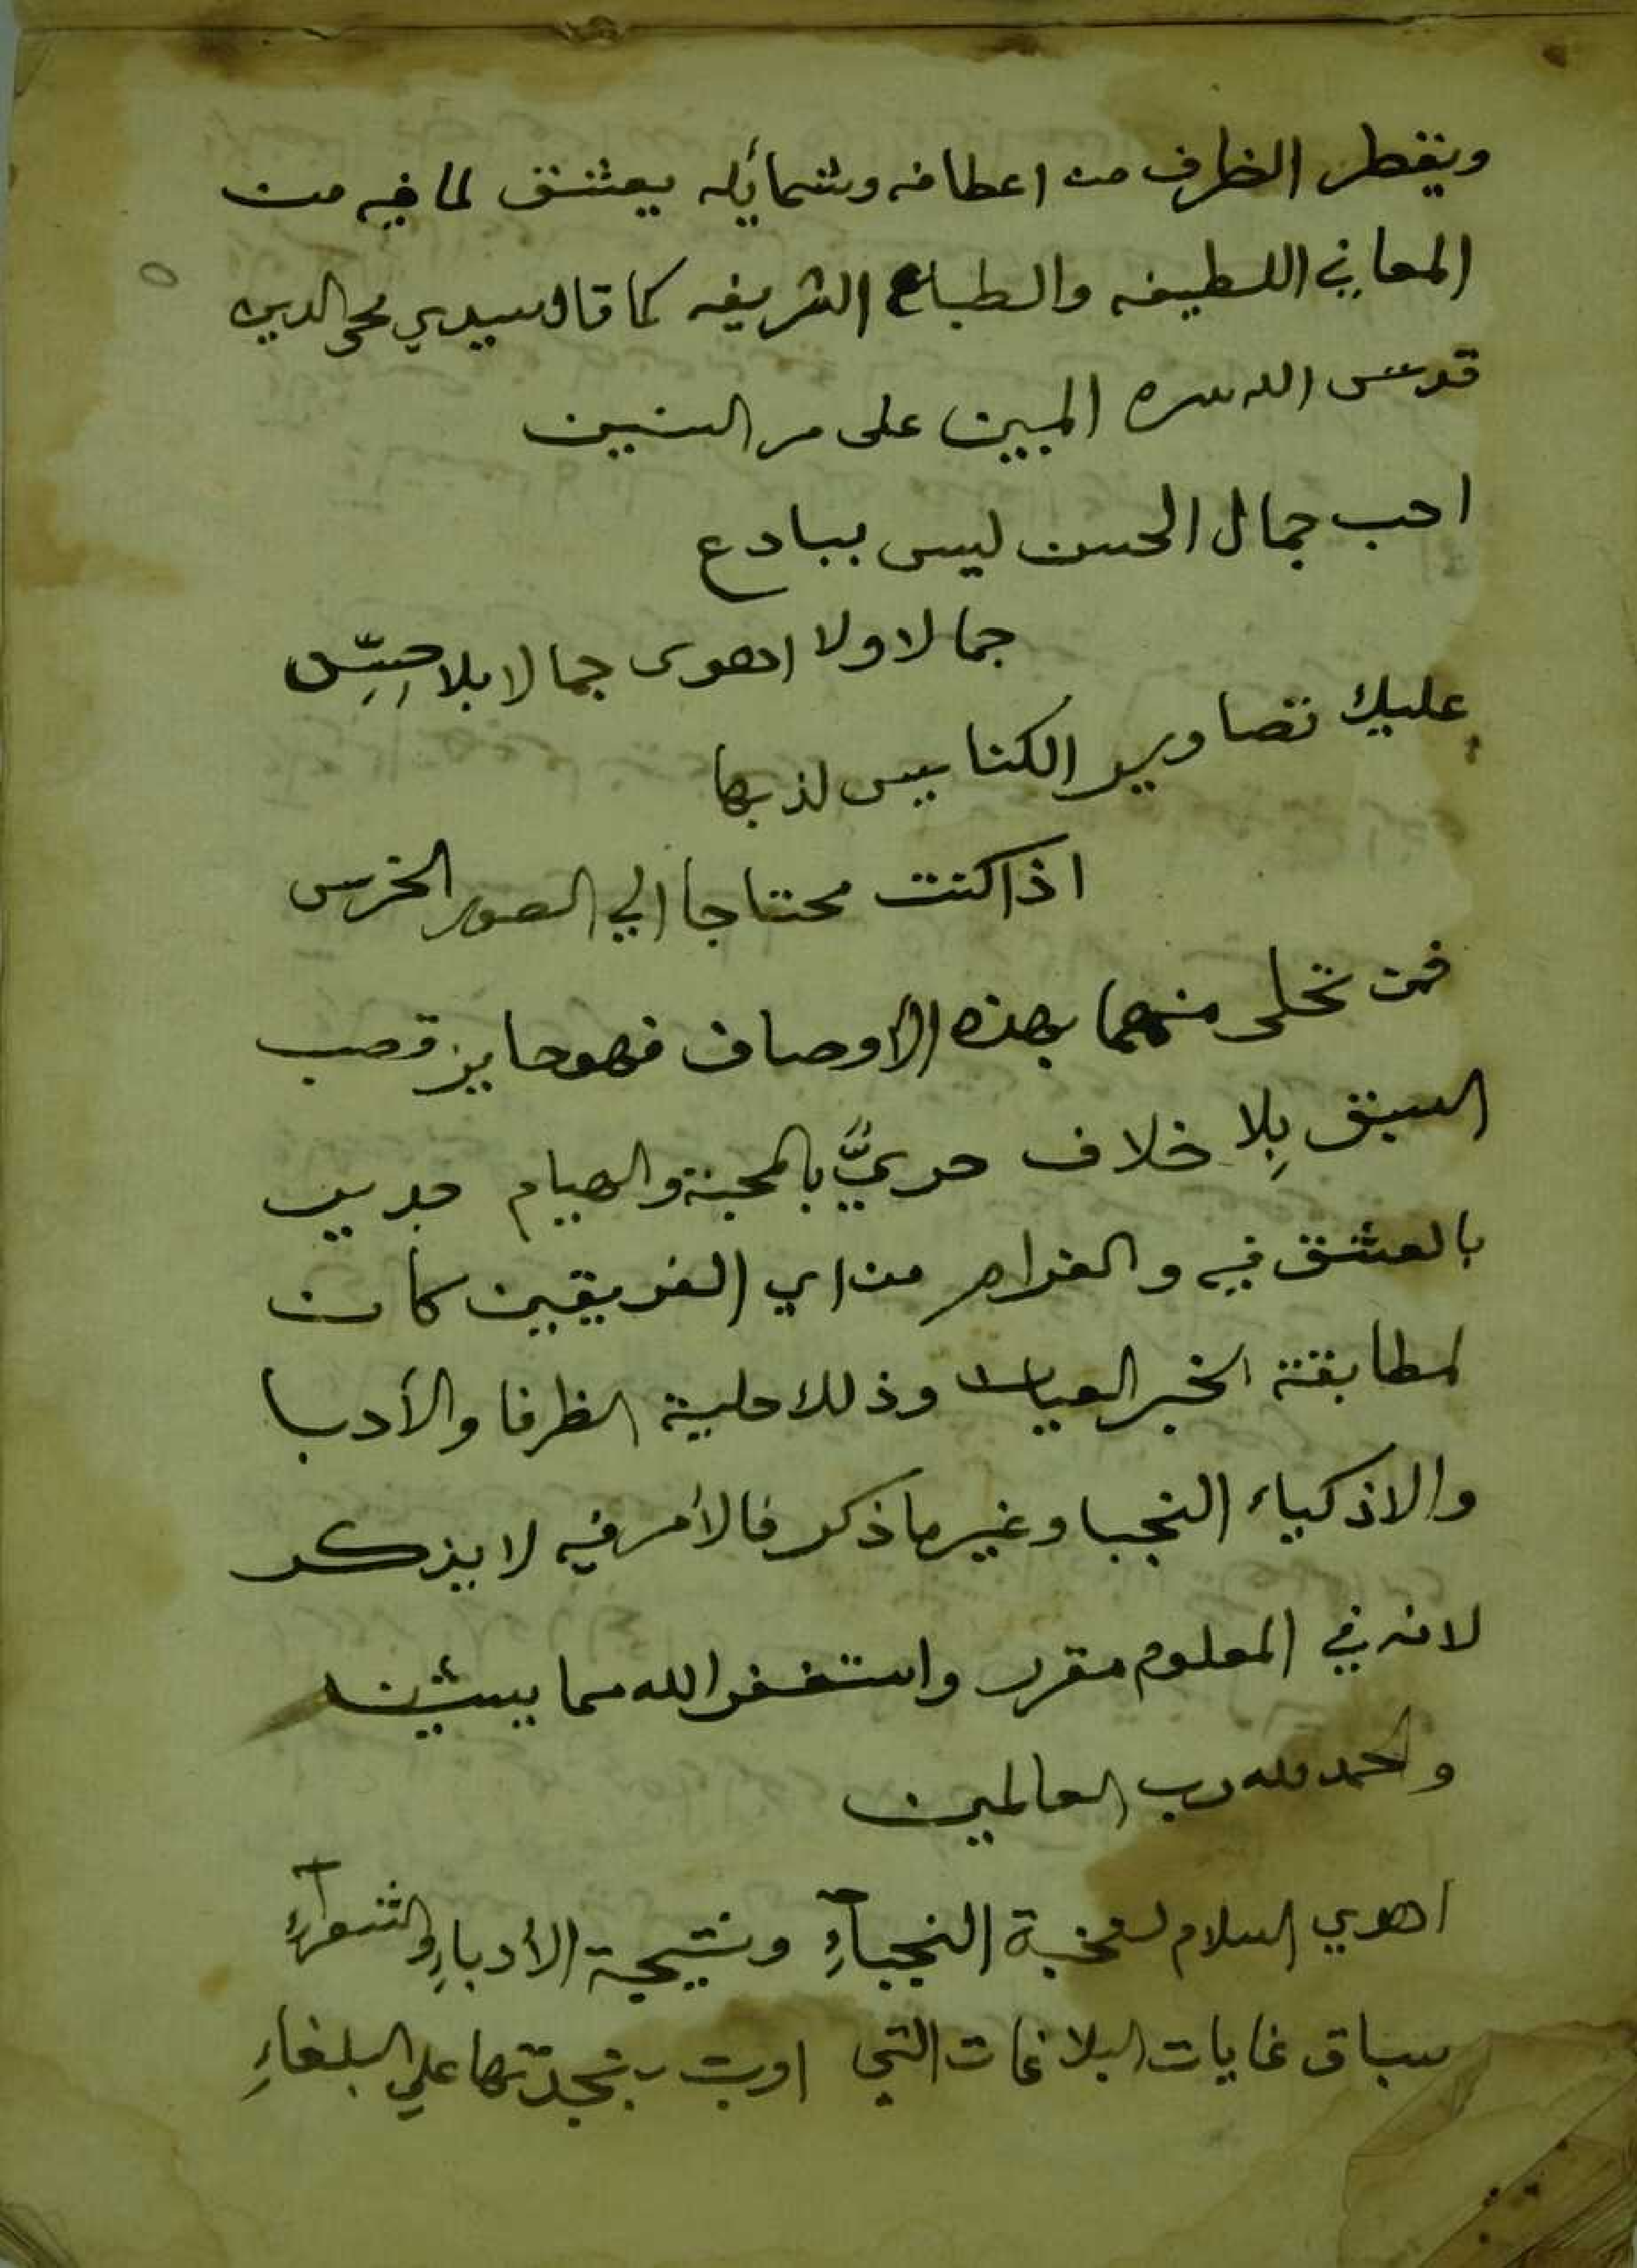 ويقطر الظرف من اعطافه وشمائله يعشق لما فيه من
المعاني اللطيفه والطباع الشريفه كما قال سيدي محي الدين
قدس الله سره المبين على مر السنين
احب جمال الحسن ليس ببادع
جمالا ولا اهوى جمالا بلا حِسِّ
عليك تصاوير الكنايس لذ بها
اذا كنت محتاجا الي الصور الخرس
فمن تحلى منهما بهذه الأوصاف فهو حايز قصب
السبق بِلا خلاف حريٌّ بالمحبة والهيام جدير
بالعشق فيه والغرام من اي الفريقين كان
لمطابقة الخبر العيان وذلك حلية الظرفا والأدبا
والاذكياء النجبا وغير ما ذكر فالأمر فيه لا يذكر
لانه في المعلوم مقرر واستغفر الله مما يشين
والحمد لله رب العالمين
اهدي السلام لنخبة النجبآءِ ونتيجة الأدباءِ والشعرآءِ
سباق غايات البلاغات التي اربت بنجدتها علي البلغاءِ